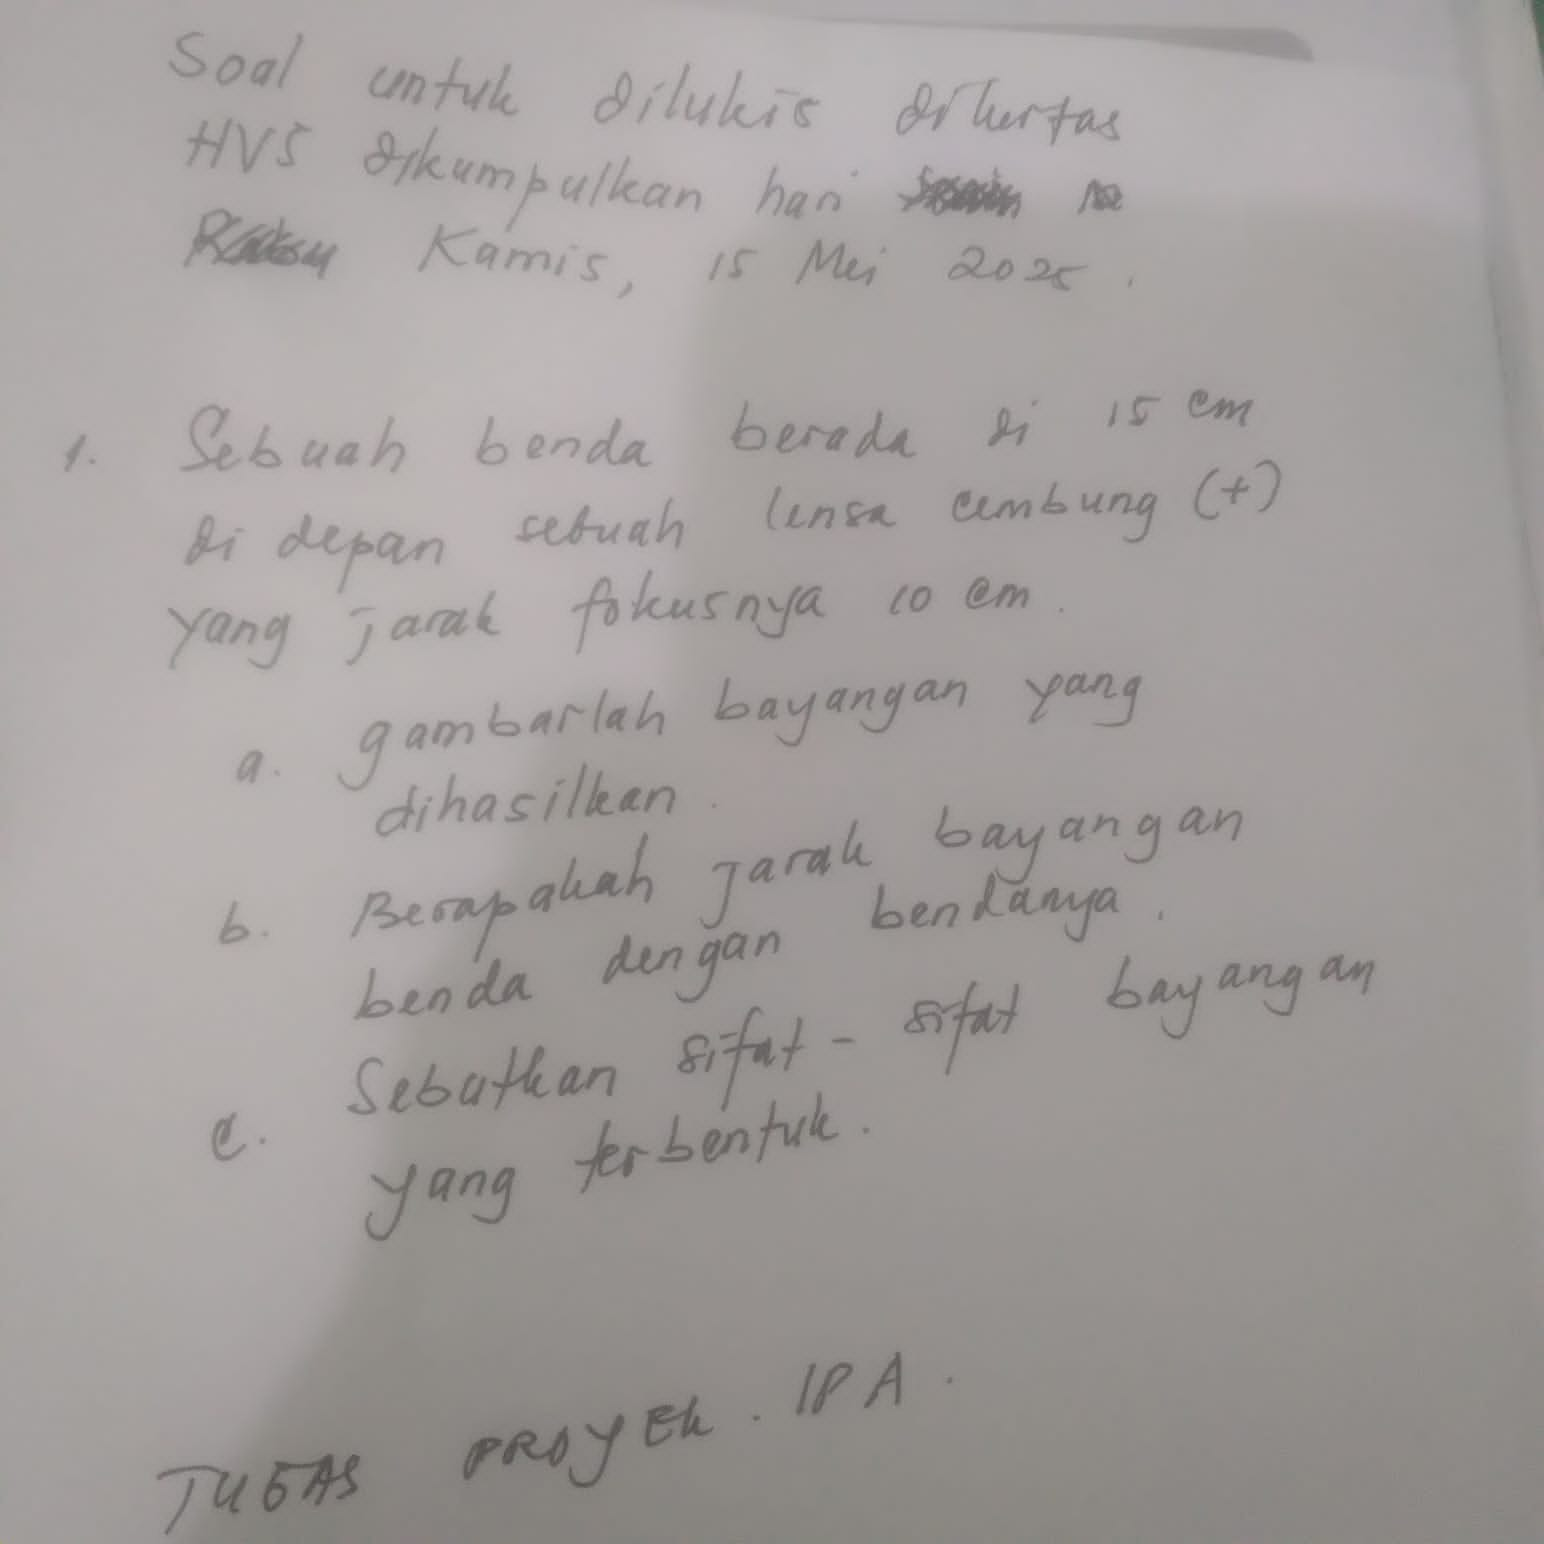 Soal untuk dilukis dikertas
HVS dikumpulkan hari
Kamis, 15 Mei 2025.
1. Sebuah benda berada di 15 cm
di depan sebuah lensa cembung (+)
yang jarak fokusnya 10 cm.
a. gambarlah bayangan yang
dihasilkan.
b. Berapakah jarak bayangan
benda dengan bendanya.
c. Sebutkan sifat-sifat bayangan
yang terbentuk.
TUGAS PROYEK. IPA.